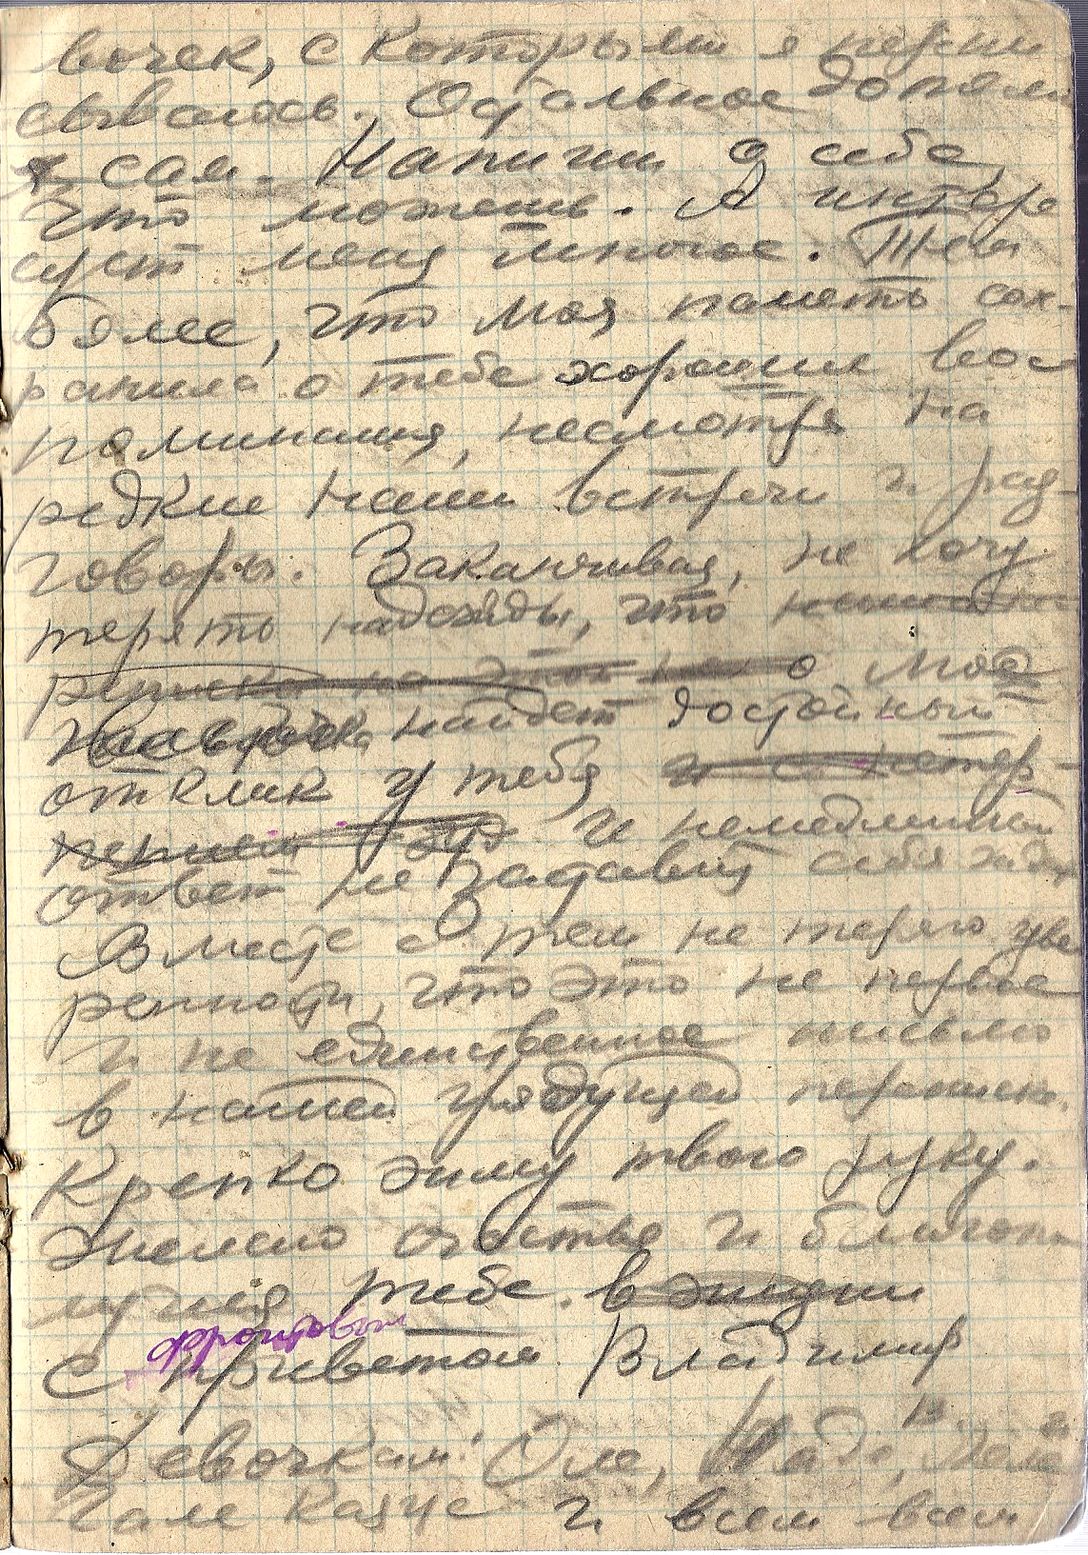 вочек, с которыми я перепи
сываюсь. Остальное дополню
я сам. Напиши о себе,
что можешь. А интере
сует меня многое. Тем
более, что моя память сох-
ранила о тебе хорошие вос
поминания, несмотря на
редкие наши встречи и раз-
говоры. Заканчивая, не хочу
терять надежды, что
о моя
найдет достойный
отклик у тебя и с нетер-
пением жду и немедленный
ответ не заставит себя ждать
Вместе с тем не теряю уве
ренности, что это не первое
и не единственное письмо
в нашей грядущей переписке.
Крепко жму твою руку.
Желаю счастья и благопо
лучия тебе. в жизни
фронтовым
С приветом Владимир
Девочкам: Оле, Наде,
Гале и всем всем